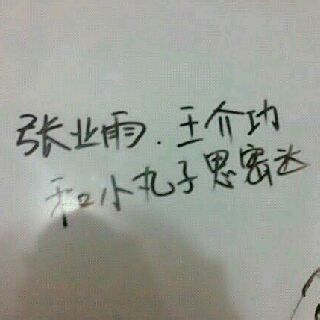 张业雨.王介功
和小丸子思密达